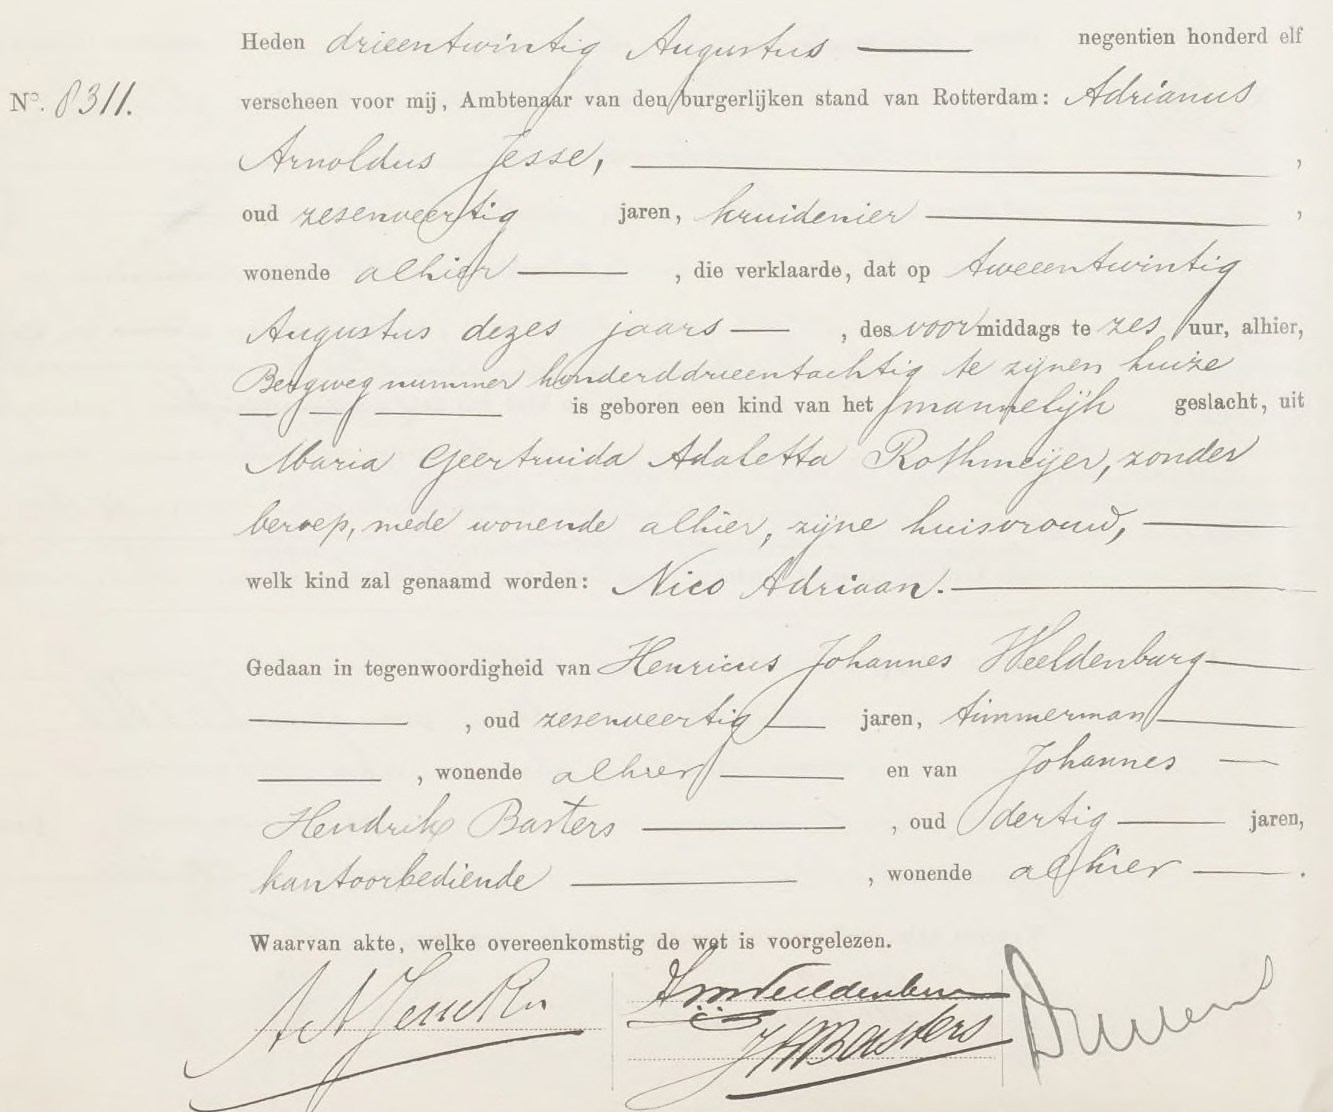 Heden drieentwintig Augustus negentien honderd elf
No. 8311. verscheen voor mij, Ambtenaar van den burgerlijken stand van Rotterdam: Adrianus
Arnoldus Jesse, ,
oud zesenveertig jaren, kruidenier ,
wonende alhier , die verklaarde, dat op tweeentwintig
Augustus dezes jaars , des voormiddags te zes uur, alhier,
Bergweg nummer honderddrieentachtig te zijnen huize
is geboren een kind van het mannelijk geslacht, uit
Maria Geertruida Adaletta Rothmeijer, zonder
beroep, mede wonende alhier, zijne huisvrouw,
welk kind zal genaamd worden: Nico Adriaan.
Gedaan in tegenwoordigheid van Henricus Johannes Weeldenburg
, oud zesenveertig jaren, timmerman
, wonende alhier en van Johannes
Hendrik Basters , oud dertig jaren,
kantoorbediende , wonende alhier .
Waarvan akte, welke overeenkomstig de wet is voorgelezen.
JHBasters